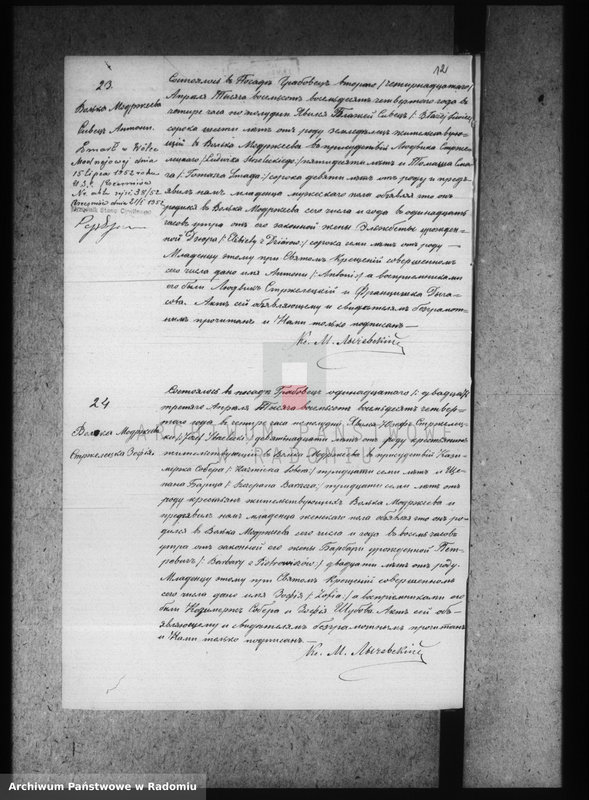 12
23.
Волька Модржеева
Сивец Антони.
Zmarł w Wólce
Modrzejowej dnia
15 lipca 1952 roku
U.S.C. Rzeczniów
Nr. aktu zejś. 38/52.
Urzędnik Stanu Cywilnego
Состоялось въ Посадѣ Грабовецъ втораго /:четырнадцатаго/
Апрѣля Тысяча восемьсотъ восемьдесятъ четвертаго года въ
четыре часа по полудни. Явился Блажей Сивецъ /: Błażej Siwiec:/
сорока шести лѣтъ отъ роду земледѣлецъ жительствую-
щій въ Волька Модржеева въ присутствіи Людвика Стрже-
лецкаго /: Ludwika Strzeleckiego:/ пятидесяти лѣтъ и Томаша
сорока девяти лѣтъ отъ роду и предъ-
явилъ намъ младенца мужескаго пола объявляя что онъ
родился въ Волька Модржеева сего числа и года въ одиннадцать
часовъ утра отъ его законной жены Эльжбеты урожден-
ной Дзюра /: Elżbiety z Dziurów:/ сорока семи лѣтъ отъ роду —
Младенцу этому при Святомъ Крещеніи совершенномъ
сего числа дано имя Антони /: Antoni:/ а воспріемниками
его были Людвикъ Стржелецкій и Францишка
Актъ сей объявляющему и свидѣтелямъ безграмот-
нымъ прочитанъ и Нами только подписанъ —
Кс. М. Лычевскій
24
Волька Модржеева
Стржелецка Зофія.
Состоялось въ посадѣ Грабовецъ одинадцатаго /: двадцать
третьяго Апрѣля Тысяча восемьсотъ восемьдесятъ четвер-
таго года въ четыре часа по полудни. Явился Юзефъ Стржелец-
кій /: Józef Strzelecki:/ лѣтъ отъ роду крестьянинъ
жительствующій въ Волька Модржеева въ присутствіи Кази-
мержа Собера /: Kazimierza Sobera:/ тридцати семи лѣтъ и Ще-
пана тридцати семи лѣтъ отъ
роду крестьянъ жительствующихъ Волька Модржеева и
предъявилъ намъ младенца женскаго пола объявляя что онъ ро-
дился въ Волька Модржеева сего числа и года въ восемь часовъ
утра отъ законной его жены Барбары урожденной Пет-
ровикъ /: Barbary z Piotrowików:/ двадцати лѣтъ отъ роду.
Младенцу этому при Святомъ Крещеніи совершенномъ
сего числа дано имя Зофія /: Zofia:/ а воспріемниками его
были Казимержъ Собера и Зофія Шубова. Актъ сей объ-
являющему и свидѣтелямъ безграмотнымъ прочитанъ
и Нами только подписанъ —
Кс. М. Лычевскій
ARCHIWUM PAŃSTWOWE
W RADOMIU
Archiwum Państwowe w Radomiu